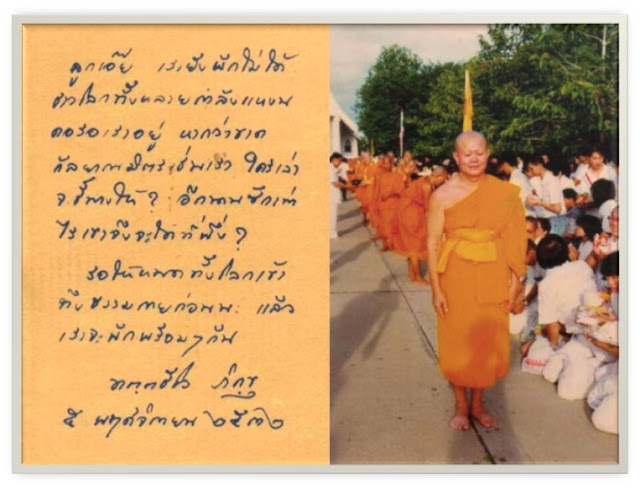 ลูกเอ๊ย เรายังพักไม่ได้
ชาวโลกทั้งหลายกำลังแหงน
คอรอเราอยู่ หากว่าขาด
กัลยาณมิตรเช่นเรา ใครเล่า
จะชี้ทางให้? อีกนานซักเท่า
ไรเขาจึงจะได้ที่พึ่ง?
รอให้หมดทั้งโลกเข้า
ถึงธรรมกายก่อนนะ แล้ว
เราจะพักพร้อมๆกัน
ทตฺตชีโว ภิกฺขุ
๕ พฤศจิกายน ๒๕๓๒